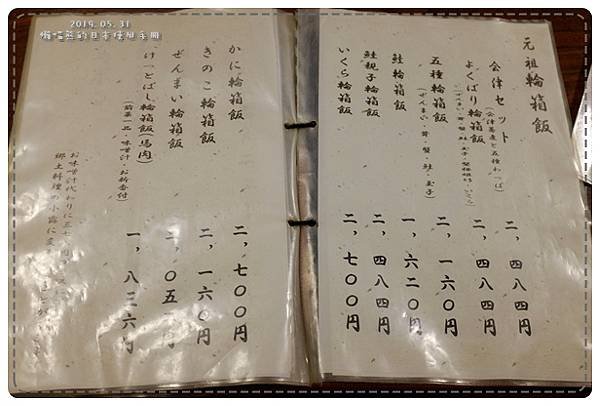 2019.05.31
元祖輪箱飯
会津セット 二、四八四円
(会津蕎麦と五種わっぱ)
よくばり輪箱飯 二、四八四円
五種輪箱飯 二、一六〇円
(ぜんまい・茸・蟹・鮭・玉子)
鮭輪箱飯 一、六二〇円
鮭親子輪箱飯 二、四八四円
いくら輪箱飯 二、七〇〇円
かに輪箱飯 二、七〇〇円
きのこ輪箱飯 二、一六〇円
ぜんまい輪箱飯 二、〇五 円
けっとばし輪箱飯(馬肉) 一、八三六円
(前菜一品・味噌汁・お新香付)
お味噌汁代わりに五七
郷土料理の小露に変